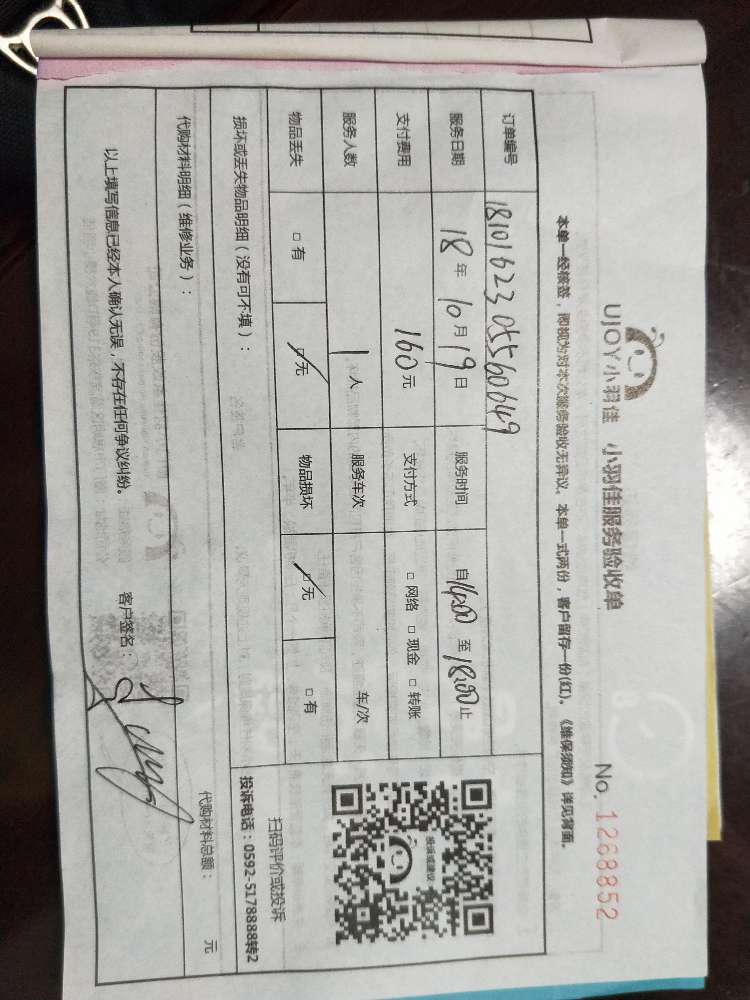 UJOY小羽佳 小羽佳服务验收单
No. 1268852
本单一经核签，即视为对本次服务验收无异议。本单一式两份，客户留存一份(红)。《维保须知》详见背面。
订单编号 1810162305560649
服务日期 18年10月19日 服务时间 自14:00至18:00止
支付费用 160元 支付方式 □网络 □现金 □转账
服务人数 1人 服务车次 车/次
物品丢失 □有 □无 物品损坏 □无 □有
损坏或丢失物品明细（没有可不填）：
投诉或建议
扫码评价或投诉
投诉电话：0592-5178888转2
代购材料明细（维修业务）： 代购材料总额： 元
以上填写信息已经本人确认无误，不存在任何争议纠纷。 客户签名：